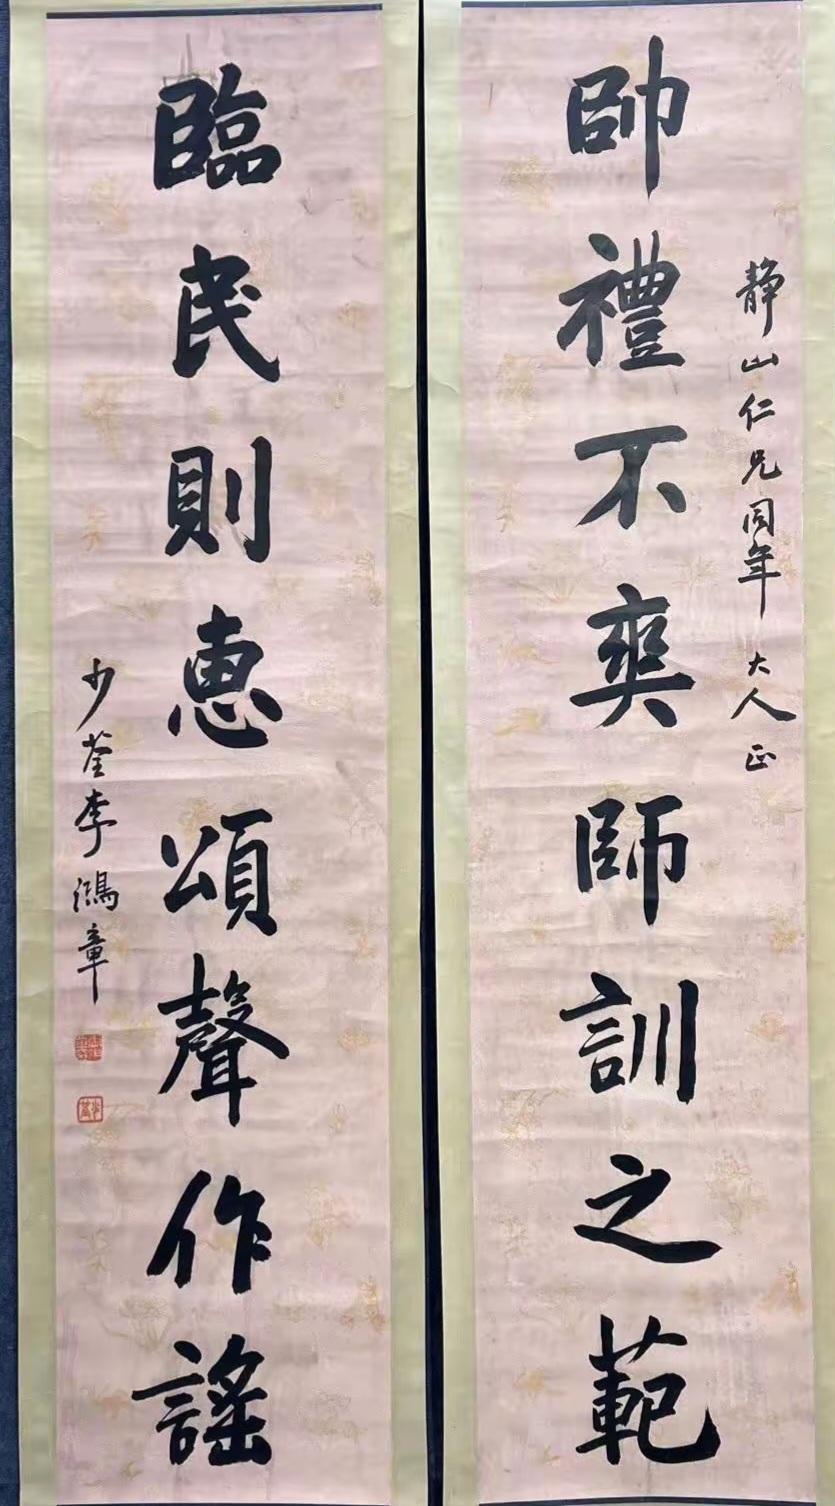 静山仁兄同年大人正
帥禮不爽師訓之範
臨民則恵頌聲作謠
少荃李鴻章